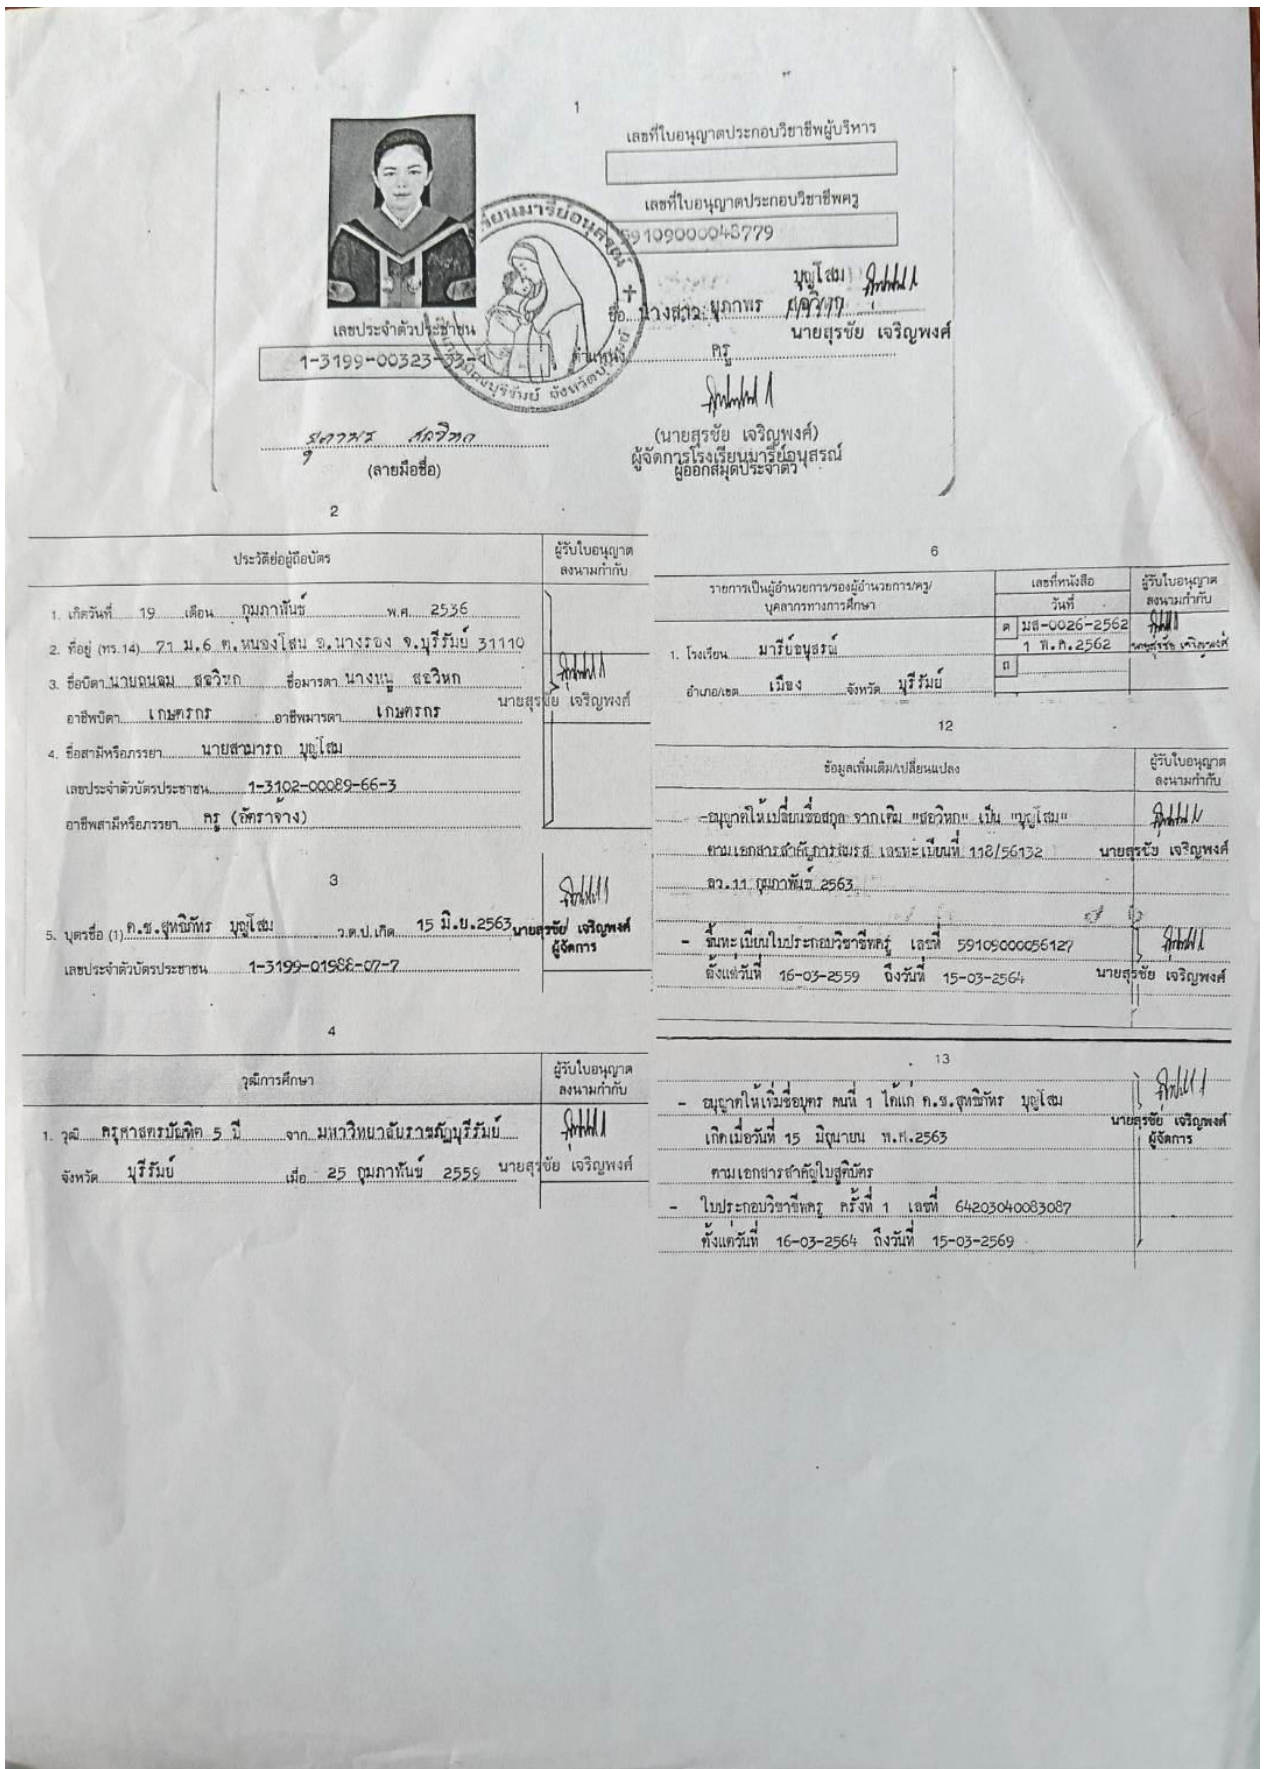 1
เลขที่ใบอนุญาตประกอบวิชาชีพผู้บริหาร
เลขที่ใบอนุญาตประกอบวิชาชีพครู
59109000048779
บุญโสม
ชื่อ นางสาว ยุภาพร สอวิหก
นายสุรชัย เจริญพงศ์
ตำแหน่ง ครู
เลขประจำตัวประชาชน
1-3199-00323-33-1
ยุภาพร สอวิหก
(ลายมือชื่อ)
(นายสุรชัย เจริญพงศ์)
ผู้จัดการโรงเรียนมารีย์อนุสรณ์
ผู้ออกสมุดประจำตัว
2
ประวัติย่อผู้ถือบัตร
ผู้รับใบอนุญาต
ลงนามกำกับ
1. เกิดวันที่ 19 เดือน กุมภาพันธ์ พ.ศ. 2536
2. ที่อยู่ (ทร.14) 71 ม.6 ต.หนองโสน อ.นางรอง จ.บุรีรัมย์ 31110
3. ชื่อบิดา นายถนอม สอวิหก ชื่อมารดา นางหนู สอวิหก
นายสุรชัย เจริญพงศ์
อาชีพบิดา เกษตรกร อาชีพมารดา เกษตรกร
4. ชื่อสามีหรือภรรยา นายสามารถ บุญโสม
เลขประจำตัวบัตรประชาชน 1-3102-00089-66-3
อาชีพสามีหรือภรรยา ครู (อัตราจ้าง)
3
5. บุตรชื่อ (1) ด.ช.สุทธิภัทร บุญโสม ว.ด.ป.เกิด 15 มิ.ย.2563
นายสุรชัย เจริญพงศ์
ผู้จัดการ
เลขประจำตัวบัตรประชาชน 1-3199-01988-07-7
4
วุฒิการศึกษา
ผู้รับใบอนุญาต
ลงนามกำกับ
1. วุฒิ ครุศาสตรบัณฑิต 5 ปี จาก มหาวิทยาลัยราชภัฏบุรีรัมย์
จังหวัด บุรีรัมย์ เมื่อ 25 กุมภาพันธ์ 2559
นายสุรชัย เจริญพงศ์
6
รายการเป็นผู้อำนวยการ/รองผู้อำนวยการ/ครู/
บุคลากรทางการศึกษา
เลขที่หนังสือ
วันที่
ผู้รับใบอนุญาต
ลงนามกำกับ
1. โรงเรียน มารีย์อนุสรณ์
ต มส-0026-2562
1 พ.ค.2562
นายสุรชัย เจริญพงศ์
ถ
อำเภอ/เขต เมือง จังหวัด บุรีรัมย์
12
ข้อมูลเพิ่มเติม/เปลี่ยนแปลง
ผู้รับใบอนุญาต
ลงนามกำกับ
-อนุญาตให้เปลี่ยนชื่อสกุล จากเดิม "สอวิหก" เป็น "บุญโสม"
ตามเอกสารสำคัญการสมรส เลขทะเบียนที่ 118/56132
นายสุรชัย เจริญพงศ์
ลว.11 กุมภาพันธ์ 2563
- ขึ้นทะเบียนใบประกอบวิชาชีพครู เลขที่ 59109000056127
ตั้งแต่วันที่ 16-03-2559 ถึงวันที่ 15-03-2564
นายสุรชัย เจริญพงศ์
13
- อนุญาตให้เพิ่มชื่อบุตร คนที่ 1 ได้แก่ ด.ช.สุทธิภัทร บุญโสม
นายสุรชัย เจริญพงศ์
ผู้จัดการ
เกิดเมื่อวันที่ 15 มิถุนายน พ.ศ.2563
ตามเอกสารสำคัญใบสูติบัตร
- ใบประกอบวิชาชีพครู ครั้งที่ 1 เลขที่ 64203040083087
ตั้งแต่วันที่ 16-03-2564 ถึงวันที่ 15-03-2569